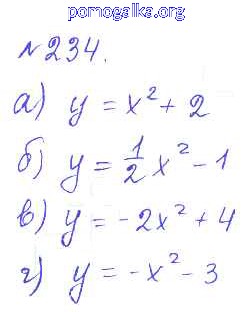 pomogalka.org
№234.
а) y = x² + 2
б) y = 1/2 x² - 1
в) y = -2x² + 4
г) y = -x² - 3